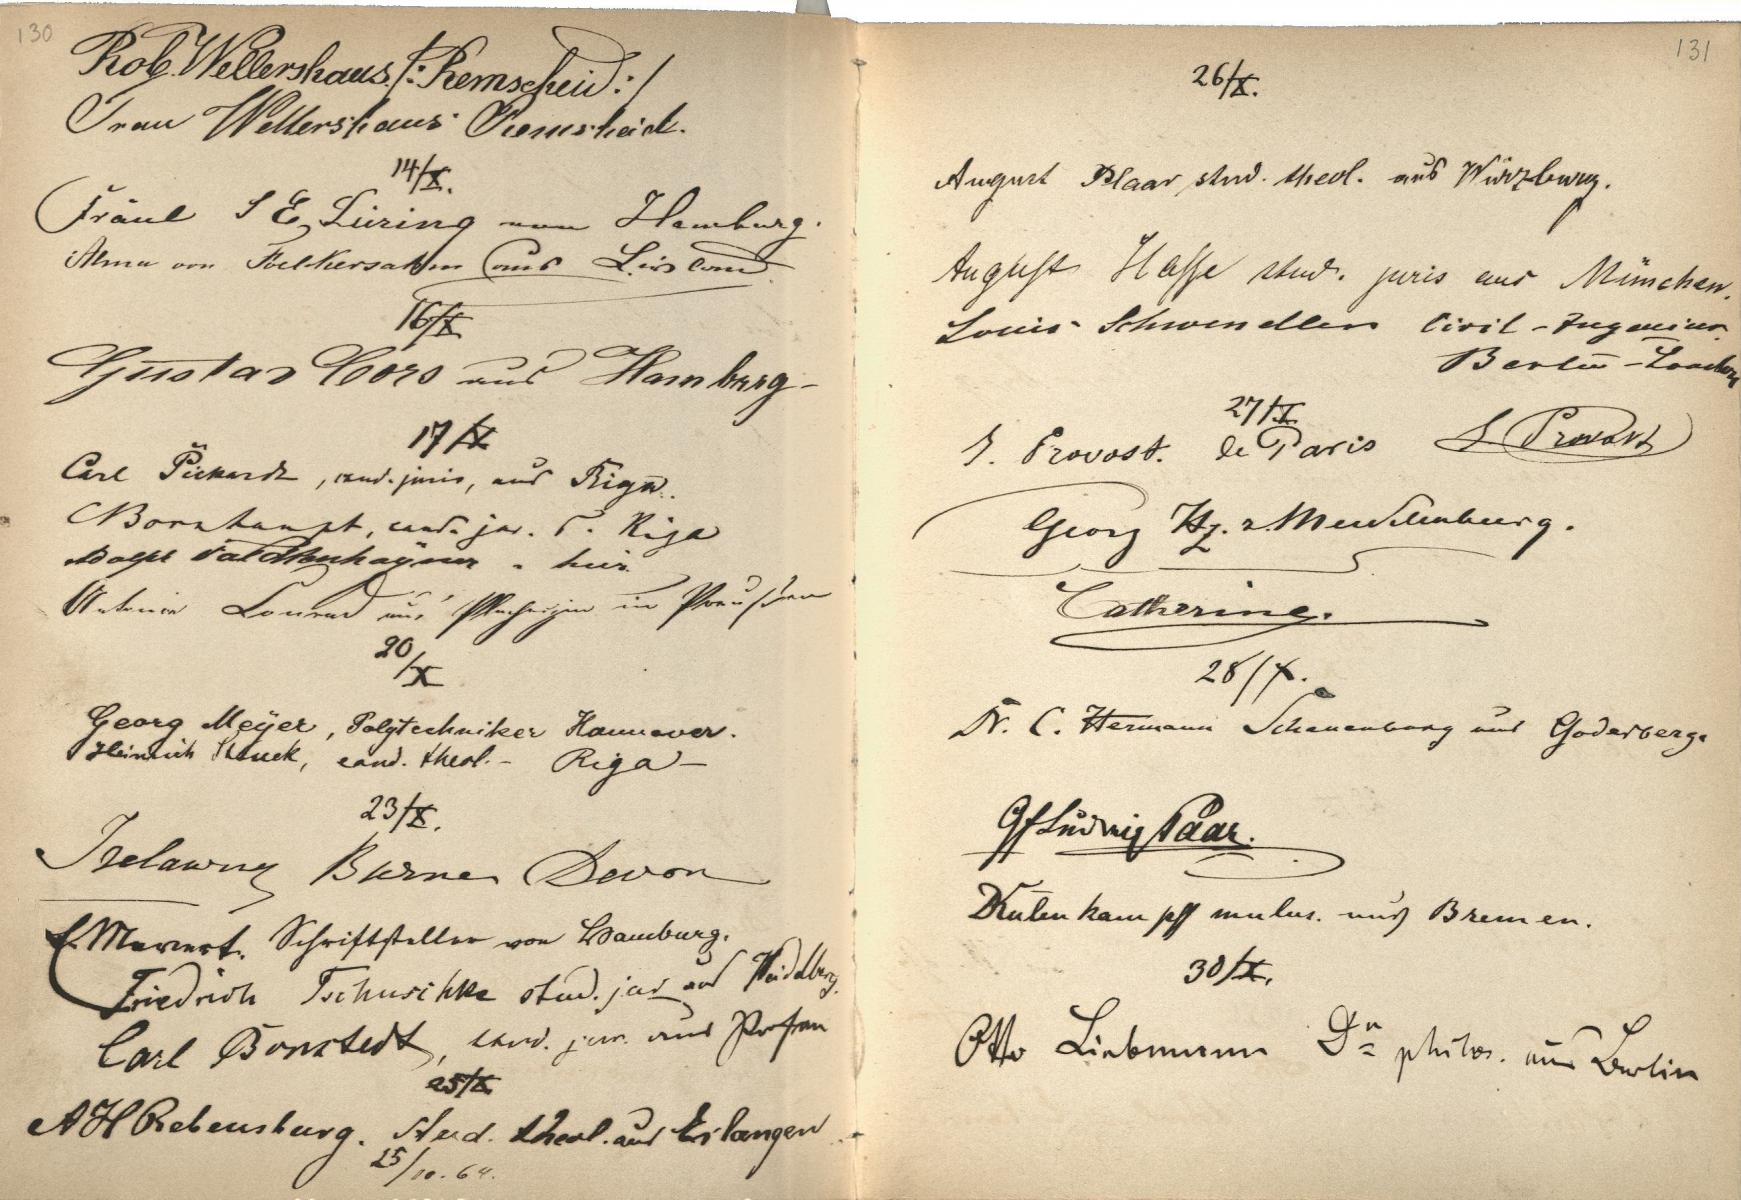 130
Rob. Wellershaus /: Remscheid :/
Frau Wellershaus Remscheid.
14/X.
Fräul S E Lüring von Hamburg.
Alma von aus
16/X
Gustav Cors aus Hamburg
17/X
Carl Pickardt, cand. juris, aus Riga.
Bornhaupt, cand. jur. Riga
Adolph hier
Antonie Conrad aus in Preußen
20/X
Georg Meÿer, Polytechniker Hannover.
Heinrich Struck, cand. theol. - Riga -
23/X.
Trelawny Burne Devon
Schriftsteller von Hamburg.
Friedrich Tschuschke stud. jur aus Heidelberg.
Carl Bornstedt, cand. jur. aus Posen
25/X
A H Rebensburg. stud. theol. aus Erlangen
25/10. 64.
131
26/X.
August Plaar stud. theol. aus Würzburg.
August Hasse stud. juris aus München.
Louis Schwendler Civil-Ingenieur
Berlin - London
27/X
J. Provost. de Paris J Provost
Georg Hz. z. Mecklenburg.
Catherine.
28/X.
Dr. C. Hermann Schauenburg aus Godesberg.
Gf Ludwig Paar.
Kulenkampff mulus. aus Bremen.
30/X.
Otto Liebmann Dr philos. aus Berlin